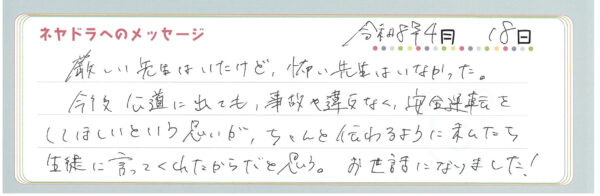 ネヤドラへのメッセージ
令和8年4月 18日
厳しい先生はいたけど、怖い先生はいなかった。
今後 公道に出ても、事故や違反なく、安全運転を
してほしいという思いが、ちゃんと伝わるように私たち
生徒に言ってくれたからだと思う。 お世話になりました!